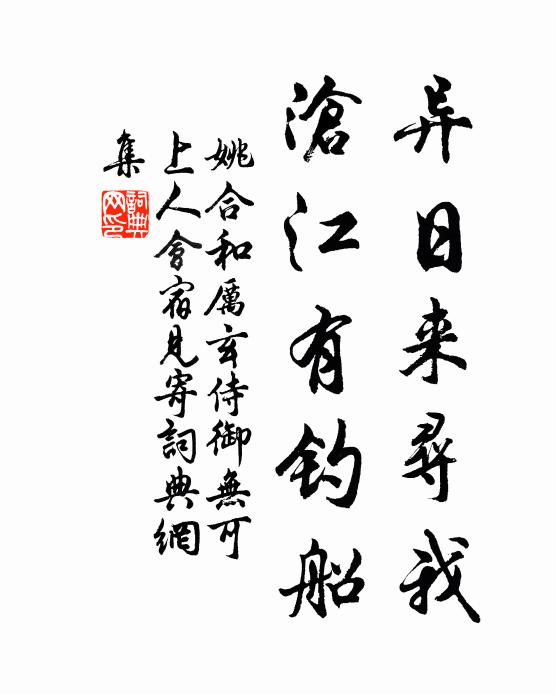 异日来尋我
滄江有钓船
姚合和厲玄侍御無可
上人會宿見寄詞典網
集
詞典
网印